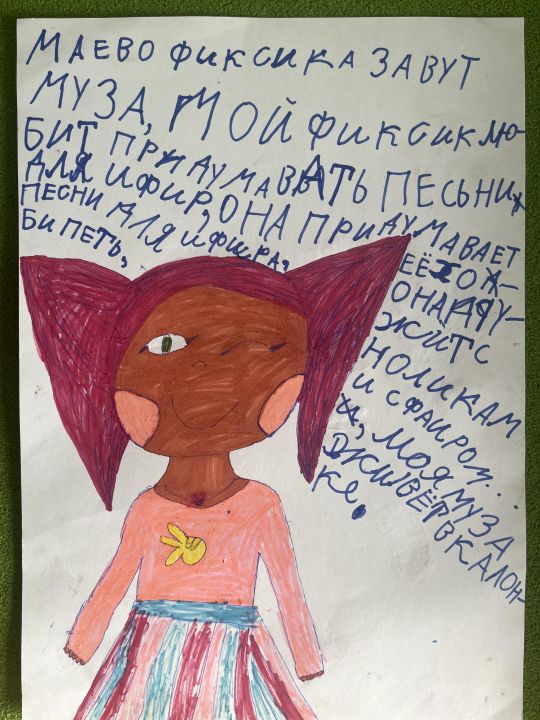 МАЕВО ФИКСИКА ЗАВУТ
МУЗА, МОЙ ФИКСИК ЛЮ-
БИТ ПРИДУМАВВАТЬ ПЕСЬНИ
ДЛЯ ИФИР, ОНА ПРИДУМАВАЕТ
ПЕСНИ ДЛЯ ИФИРА,
БИ ПЕТЬ,
ЕЁ
ОНА
ЖИТ С
НОЛИКАМ
И СФАИРОМ...
, МОЯ МУЗА
ЖИВЁТ В КАЛОН-
КЕ.